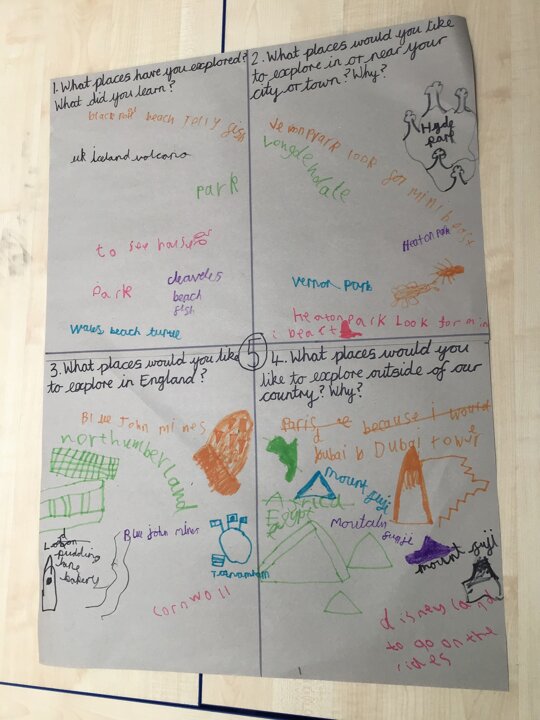 1. What places have you explored?
What did you learn?
beach
uk iceland volcano
Park
to see
Park
cleaveles
beach
fish
Wales beach turtle
2. What places would you like
to explore in or near your
city or town? Why?
Hyde
park
look for minibeast
Heaton park
Vernon Park
Heaton park Look for min
i beast
5
3. What places would you like
to explore in England?
Blue John mines
northumberland
Blue john mines
pudding
lane
bakery
cornwall
4. What places would you
like to explore outside of our
country? Why?
Paris because I would
bubai b Dubai tower
mount fuji
Africa
Egypt
moutain
mount fuji
to go on the
rides